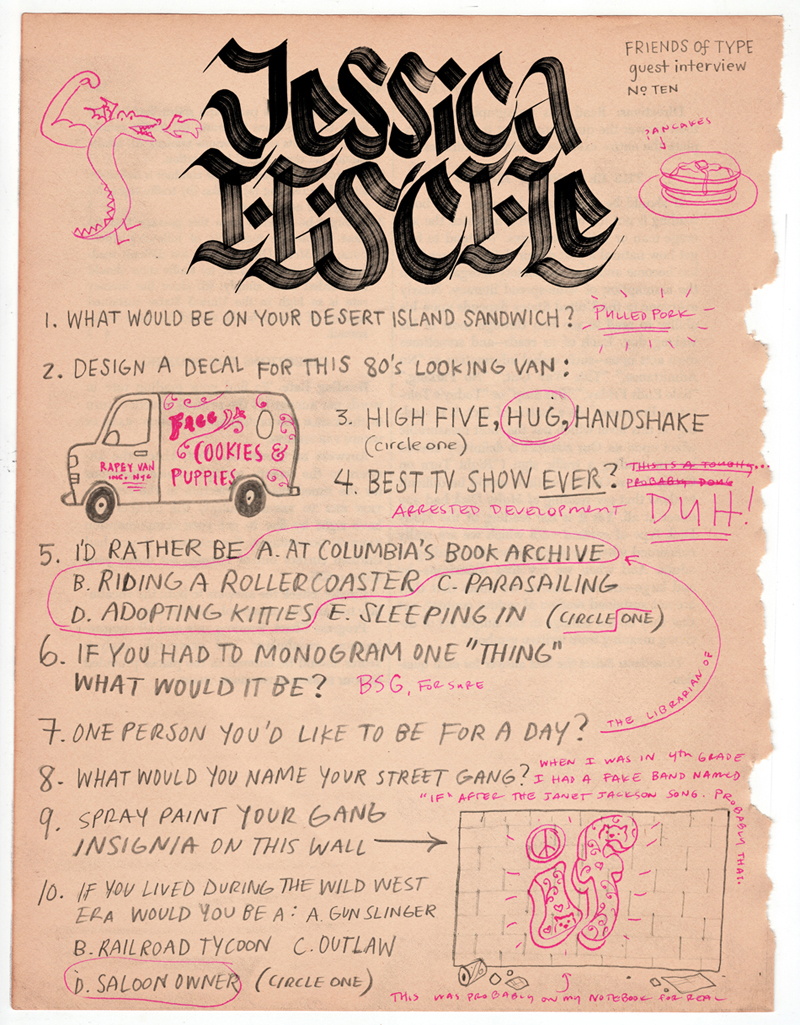 Jessica
HiSCHe
FRIENDS of TYPE
guest interview
Nº TEN
PANCAKES
1. WHAT WOULD BE ON YOUR DESERT ISLAND SANDWICH? PULLED PORK
2. DESIGN A DECAL FOR THIS 80's LOOKING VAN:
FREE
COOKIES &
PUPPIES
RAPEY VAN
INC. NYC
3. HIGH FIVE, HUG, HANDSHAKE
(circle one)
4. BEST TV SHOW EVER? THIS IS A TOUGHY...
PROBABLY DOUG
ARRESTED DEVELOPMENT DUH!
5. I'D RATHER BE A. AT COLUMBIA'S BOOK ARCHIVE
B. RIDING A ROLLERCOASTER C. PARASAILING
D. ADOPTING KITTIES E. SLEEPING IN (CIRCLE ONE)
6. IF YOU HAD TO MONOGRAM ONE "THING"
WHAT WOULD IT BE? BSG, FOR SURE
7. ONE PERSON YOU'D LIKE TO BE FOR A DAY? THE LIBRARIAN OF
8. WHAT WOULD YOU NAME YOUR STREET GANG? WHEN I WAS IN 4TH GRADE
I HAD A FAKE BAND NAMED
"IF" AFTER THE JANET JACKSON SONG. PROBABLY THAT.
9. SPRAY PAINT YOUR GANG
INSIGNIA ON THIS WALL
if
THIS WAS PROBABLY ON MY NOTEBOOK FOR REAL
10. IF YOU LIVED DURING THE WILD WEST
ERA WOULD YOU BE A: A. GUNSLINGER
B. RAILROAD TYCOON C. OUTLAW
D. SALOON OWNER (CIRCLE ONE)